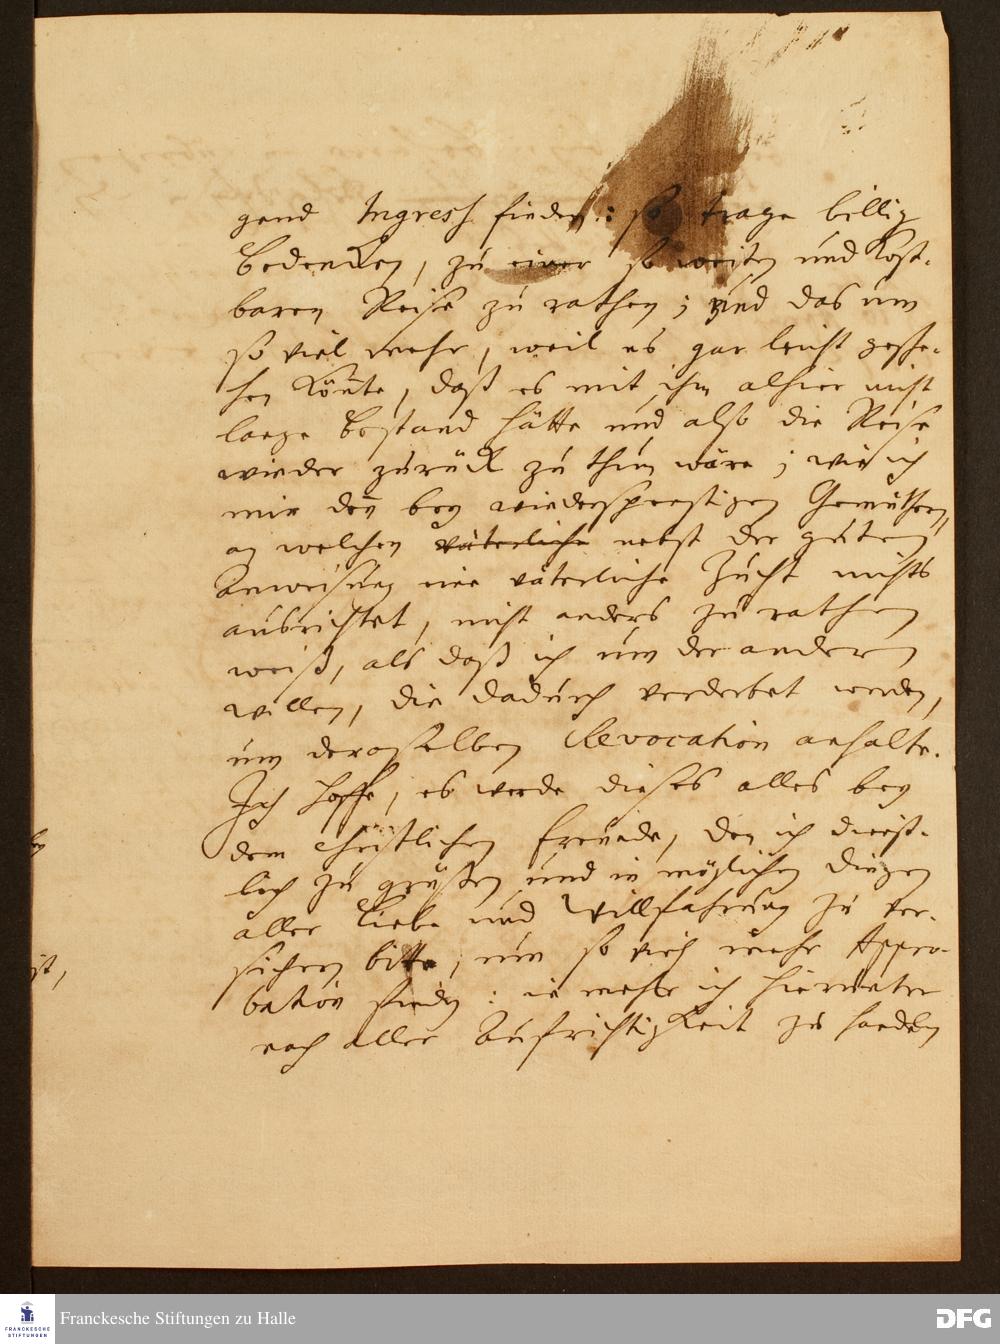 gend Ingress finden: so trage billig
Bedencken, zu einer so weiten und Kost-
baren Reise zu rathen; und das um
so viel mehr, weil es gar leicht gesche-
hen Könte, daß es mit ihm alhier nicht
lange Bestand hätte und also die Reise
wieder zurück zu thun wäre; wie ich
mir den bey wiederspenstigen Gemüthern,
an welchen väterliche nebst der guten
Anweisung eine väterliche Zucht nichts
ausrichtet, nicht anders zu rathen
weiß, als daß ich um der andern
willen, die dadurch verderbet werden,
um deroselben Revocation anhalte.
Ich hoffe, es werde dieses alles bey
dem Christlichen Freunde, den ich dienst-
lich zu grüßen und in möglichen Dingen
aller Liebe und Willfahrung zu ver-
sichern bitte, um so viel mehr Appro-
bation finden: ie mehr ich hierunter
nach aller Aufrichtigkeit zu handeln
Franckesche Stiftungen zu Halle
FRANCKESCHE
STIFTUNGEN
DFG